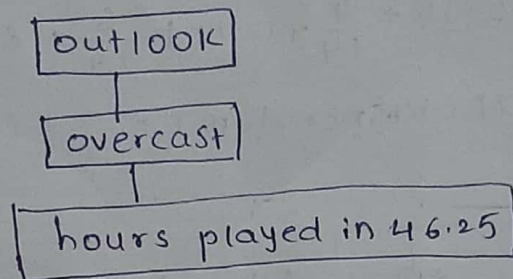 outlook
overcast
hours played in 46.25